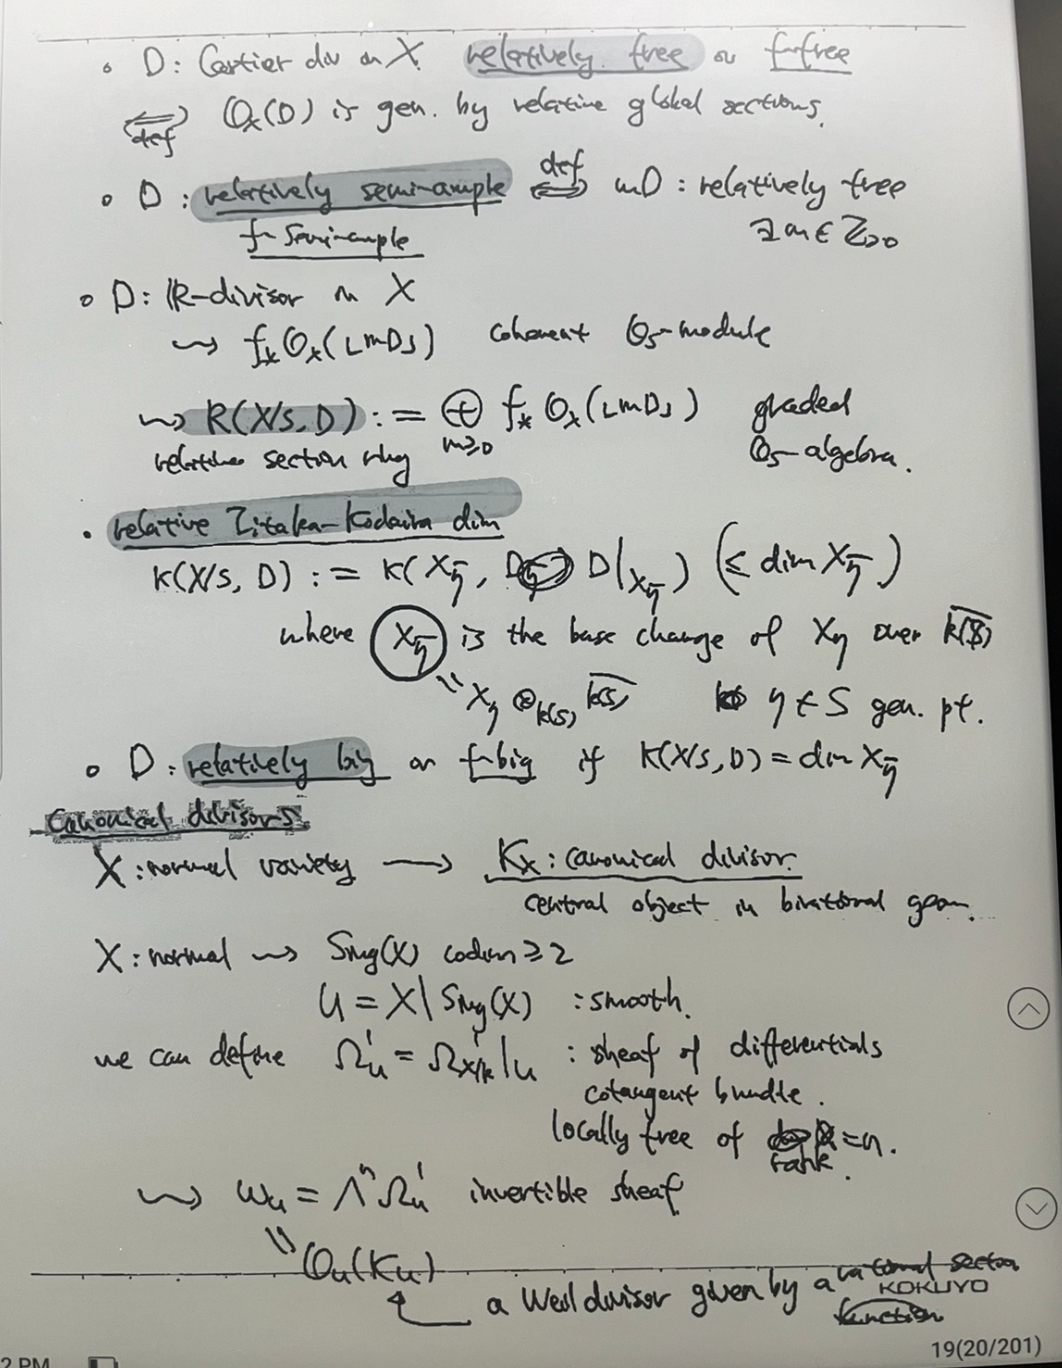 • D : Cartier div on X relatively free or f-free
⟺def O_X(D) is gen. by relative global sections.
• D : relatively semi-ample ⟺def mD : relatively free
f-semiample ∃m∈Z>0
• D : R-divisor on X
⇝ f_*O_X(⌊mD⌋) coherent O_S-module
⇝ R(X/S, D) := ⊕_{m≥0} f_*O_X(⌊mD⌋) graded
relative section ring O_S-algebra.
• relative Iitaka-Kodaira dim
κ(X/S, D) := κ(X_η̄, D|_{X_η̄}) (≤ dim X_η̄)
where X_η̄ is the base change of X_η over \overline{k(S)}
" X_η ⊗_{k(S)} \overline{k(S)} η ∈ S gen. pt.
• D : relatively big or f-big if κ(X/S, D) = dim X_η̄
Canonical divisors
X : normal variety ⟶ K_X : canonical divisor.
central object in birational geom.
X : normal ⇝ Sing(X) codim ≥ 2
U = X \ Sing(X) : smooth.
we can define Ω¹_U = Ω¹_{X/k}|_U : sheaf of differentials
cotangent bundle.
locally free of rank = n.
⇝ ω_U = Λⁿ Ω¹_U invertible sheaf
" O_U(K_U)
a Weil divisor given by a rational section
KOKUYO
function
19(20/201)
2 PM